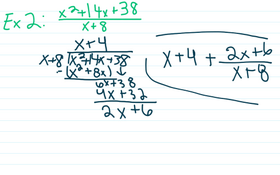 Ex 2: x²+14x+38 / x+8
x+4
x+8 √x²+14x+38
-(x²+8x)↓
6x+38
4x+32
2x+6
x+4 + 2x+6 / x+8